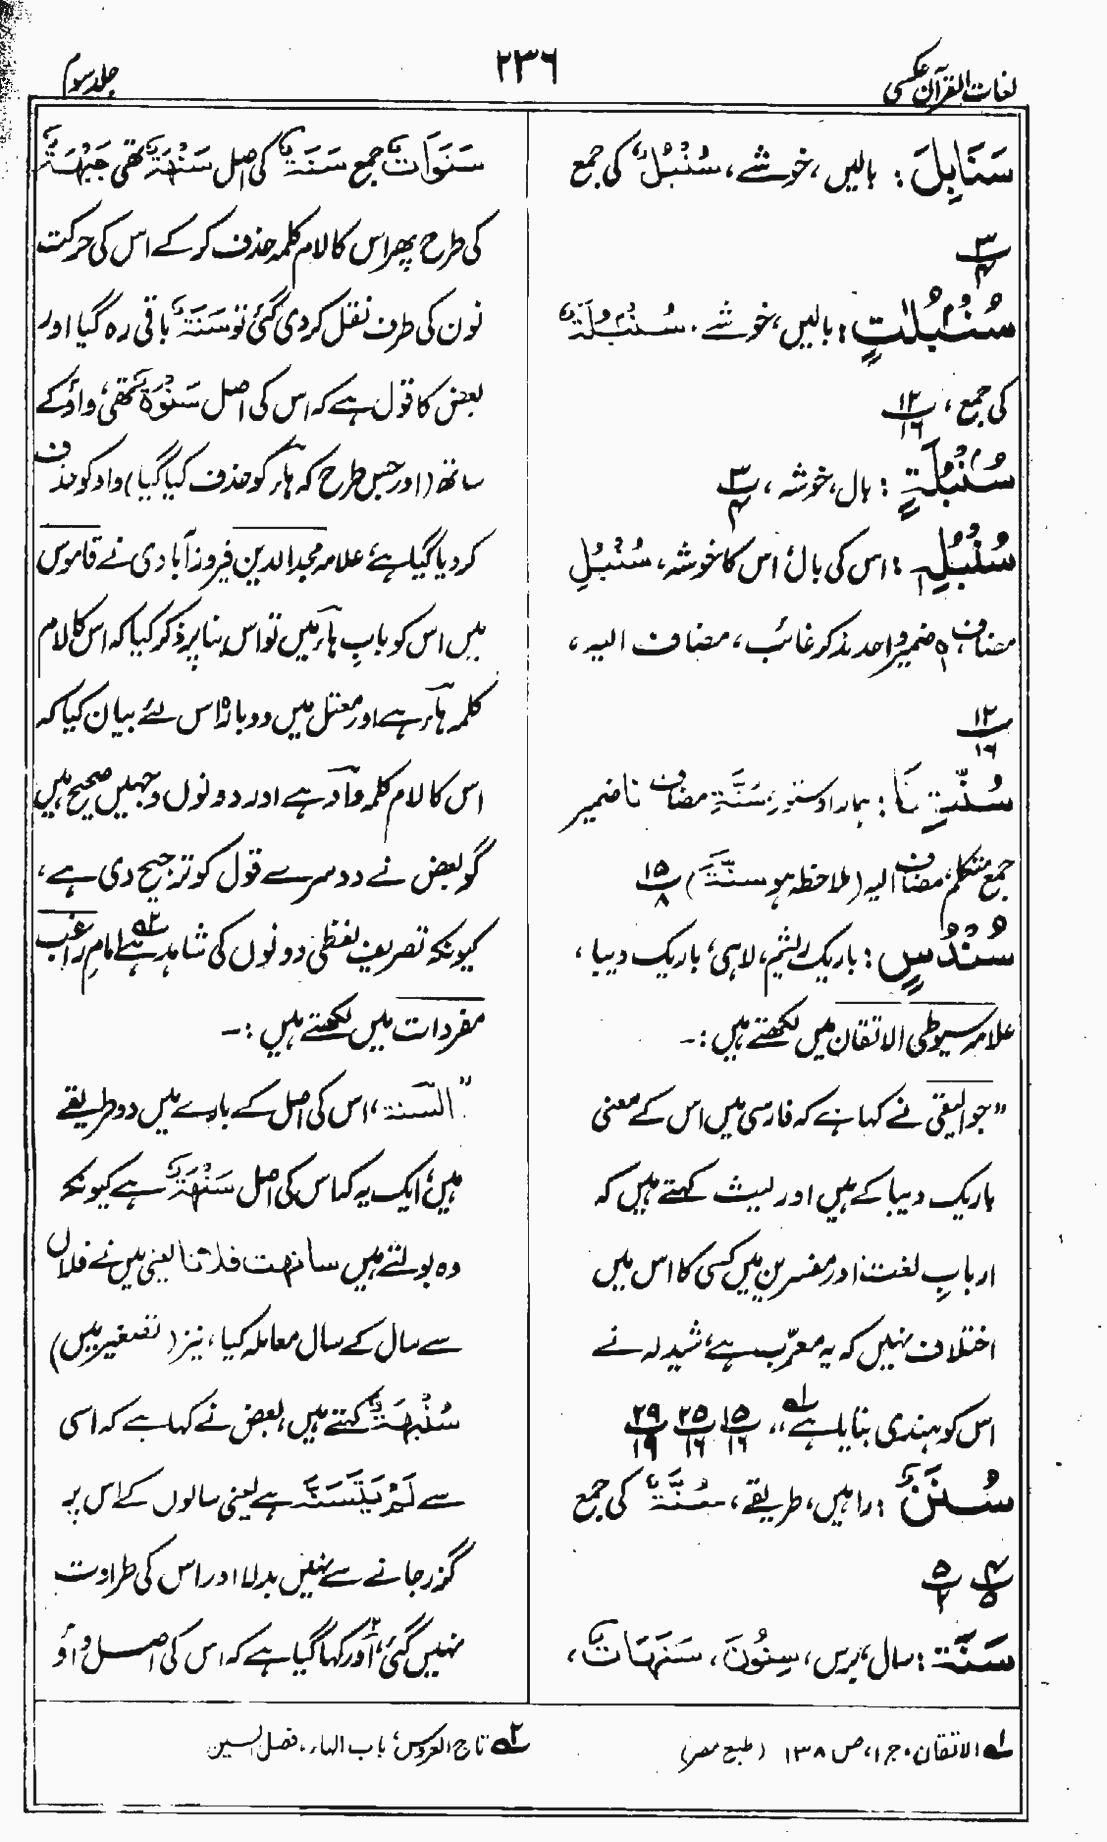 لغات القرآن عکسی
۲۳۶
جلد سوم
سَنَابِلَ : بالیں، خوشے، سُنْبُلٌ کی جمع
۳/۴
سُنْبُلٰتٍ : بالیں، خوشے، سُنْبُلَةٌ
کی جمع، ۱۲/۱۶
سُنْبُلَةٍ : بال، خوشہ، ۳/۴
سُنْبُلِہٖ : اس کی بال، اس کا خوشہ، سُنْبُلِ
مضاف، ہٖ ضمیر واحد مذکر غائب، مضاف الیہ،
۱۲/۱۶
سُنَّتِنَا : ہمارا دستور، سُنَّةِ مضاف نا ضمیر
جمع متکلم، مضاف الیہ (ملاحظہ ہو سنّۃ) ۱۵/۸
سُنْدُسٍ : باریک ریشم، لاہی، باریک دیبا،
علامہ سیوطی الاتقان میں لکھتے ہیں :-
"جوالیقی نے کہا ہے کہ فارسی میں اس کے معنی
باریک دیبا کے ہیں اور لیث کہتے ہیں کہ
اربابِ لغت اور مفسرین میں کسی کا اس میں
اختلاف نہیں کہ یہ معرّب ہے، شیدلہ نے
اس کو ہندی بتایا ہے"۱ ۱۵/۱۶ ۲۵/۱۶ ۲۹/۱۹
سُنَنٌ : راہیں، طریقے، سُنَّةٌ کی جمع
۴/۵ ۵/۲
سَنَةً : سال، برس، سِنُونَ، سَنَهَاتٌ،
سَنَوَاتٌ جمع سَنَةٌ کی اصل سَنْهَةٌ تھی جَبْهَةٌ
کی طرح پھر اس کا لام کلمہ حذف کر کے اس کی حرکت
نون کی طرف نقل کر دی گئی تو سَنَةٌ باقی رہ گیا اور
بعض کا قول ہے کہ اس کی اصل سَنْوَةٌ تھی، واؤ کے
ساتھ (اور جس طرح کہ ہاء کو حذف کیا گیا) واو کو حذف
کر دیا گیا ہے، علامہ مجد الدین فیروز آبادی نے قاموس
میں اس کو بابِ ہاء میں تو اس بنا پر ذکر کیا کہ اس کا لام
کلمہ ہاء ہے اور معتل میں دوبارہ اس لئے بیان کیا کہ
اس کا لام کلمہ واو ہے اور دونوں وجہیں صحیح ہیں
گو بعض نے دوسرے قول کو ترجیح دی ہے،
کیونکہ تصریف لفظی دونوں کی شاہد ہے۲ امام راغب
مفردات میں لکھتے ہیں :-
"السنۃ، اس کی اصل کے بارے میں دو طریقے
ہیں، ایک یہ کہ اس کی اصل سَنْهَةٌ ہے کیونکہ
وہ بولتے ہیں سانھت فلانا یعنی میں نے فلاں
سے سال کے سال معاملہ کیا، نیز (تصغیر میں)
سُنَيْهَةٌ کہتے ہیں، بعض نے کہا ہے کہ اسی
سے لَمْ يَتَسَنَّهْ ہے یعنی سالوں کے اس پر
گزر جانے سے نہیں بدلا اور اس کی طراوت
نہیں گئی، اور کہا گیا ہے کہ اس کی اصل واؤ
۱ الاتقان، ج ۱، ص ۱۳۸ (طبع مصر)
۲ تاج العروس، باب الہاء، فصل السین